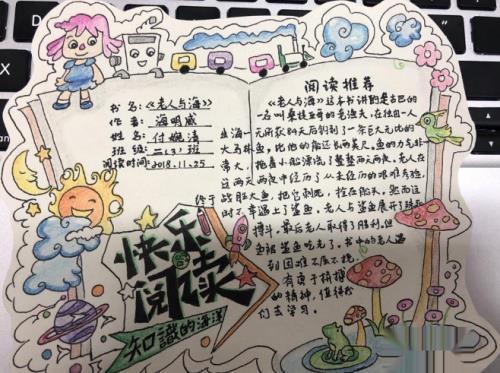 书名:《老人与海》
作者:海明威
姓名:付婉清
班级:二(3)班
阅读时间:2018.11.25
快乐阅读
知識的海洋
阅读推荐
《老人与海》这本书讲的是古巴的
一名叫桑提亚哥的老渔夫,在独自一人
出海一无所获84天后钓到了一条巨大无比的
大马林鱼,比他的船还长两英尺。鱼的力气非
常大,拖着小船漂流了整整两天两夜。老人在
这两天两夜中经历了从未经历的艰难考验,
终于战胜大鱼,把它刺死,拴在船头。然而这
时不幸遇上了鲨鱼。老人与鲨鱼展开了殊死
搏斗,最后老人取得了胜利,但
鱼被鲨鱼吃光了。书中的老人遇
到困难不屈不挠,
有勇于拼搏
的精神,值得我
们去学习。